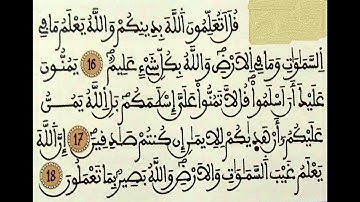 قُلَ اَتُعَلِّمُونَ اَللَّهَ بِدِينِكُمْ وَاللَّهُ يَعْلَمُ مَا فِي
اِلسَّمَٰوَٰتِ وَمَا فِي اِلَارْضِ وَاللَّهُ بِكُلِّ شَيْءٍ عَلِيمٌ 16 يَمُنُّونَ
عَلَيْكَ أَنَ اَسْلَمُواْ قُل لَّا تَمُنُّواْ عَلَيَّ إِسْلَٰمَكُم بَلِ اِللَّهُ يَمُنُّ
عَلَيْكُمُ أَنْ هَدَٰيكُمْ لِلِايمَٰنِ إِن كُنتُمْ صَٰدِقِينَ 17 إِنَّ اَللَّهَ
يَعْلَمُ غَيْبَ اَلسَّمَٰوَٰتِ وَالَارْضِ وَاللَّهُ بَصِيرٌ بِمَا تَعْمَلُونَ 18